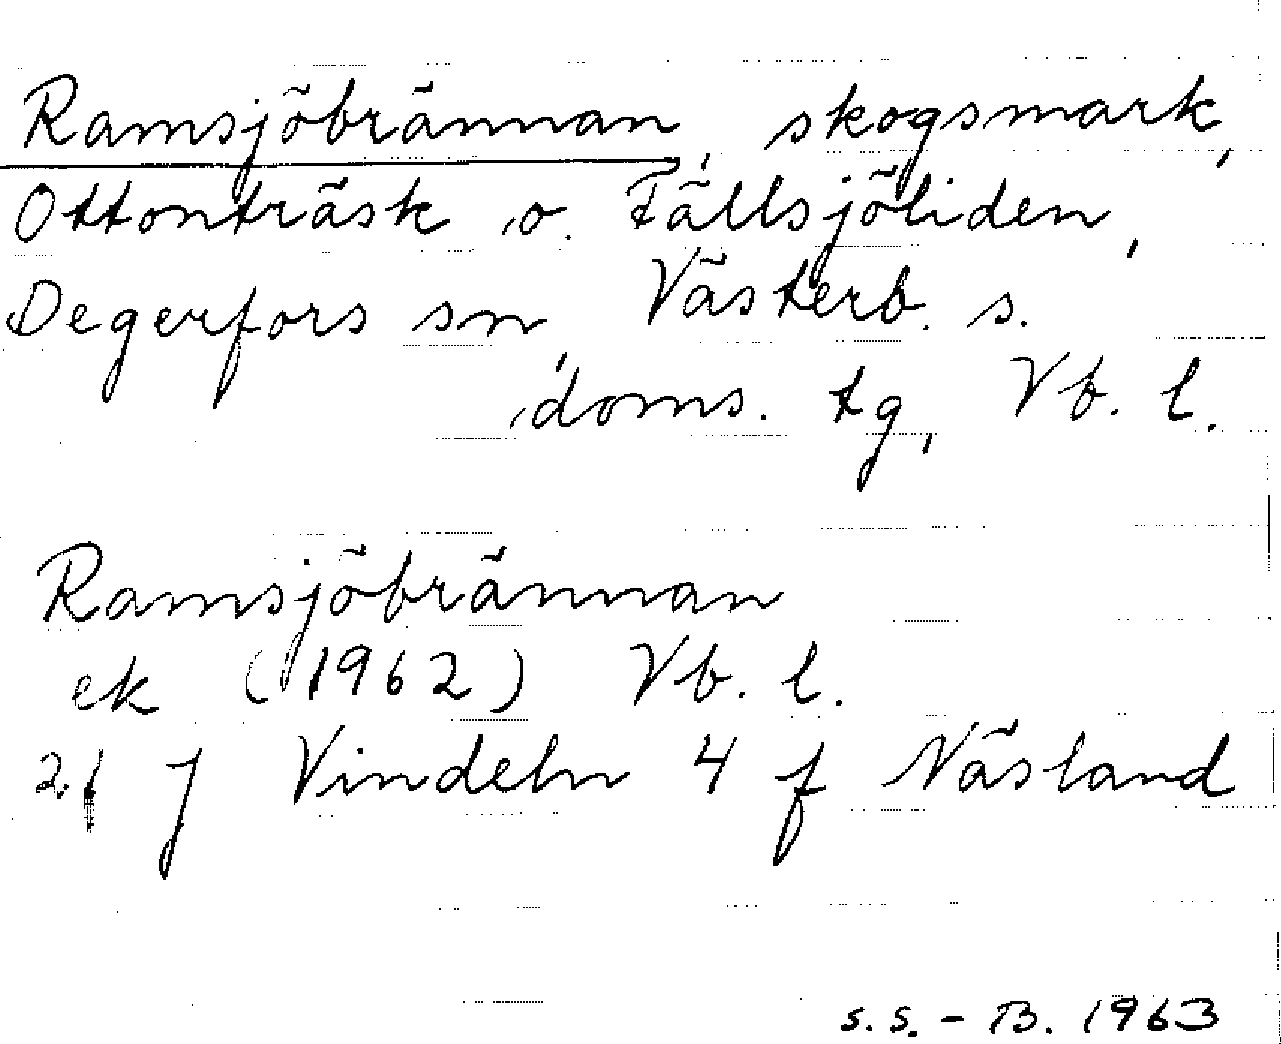 Ramsjöbrännan, skogsmark,
Ottonträsk o. Fällsjöliden,
Degerfors sn, Västerb. s.
doms. tg, Vb. l.
Ramsjöbrännan
ek (1962) Vb. l.
21 J Vindeln 4 f Näsland
s.s. - B. 1963